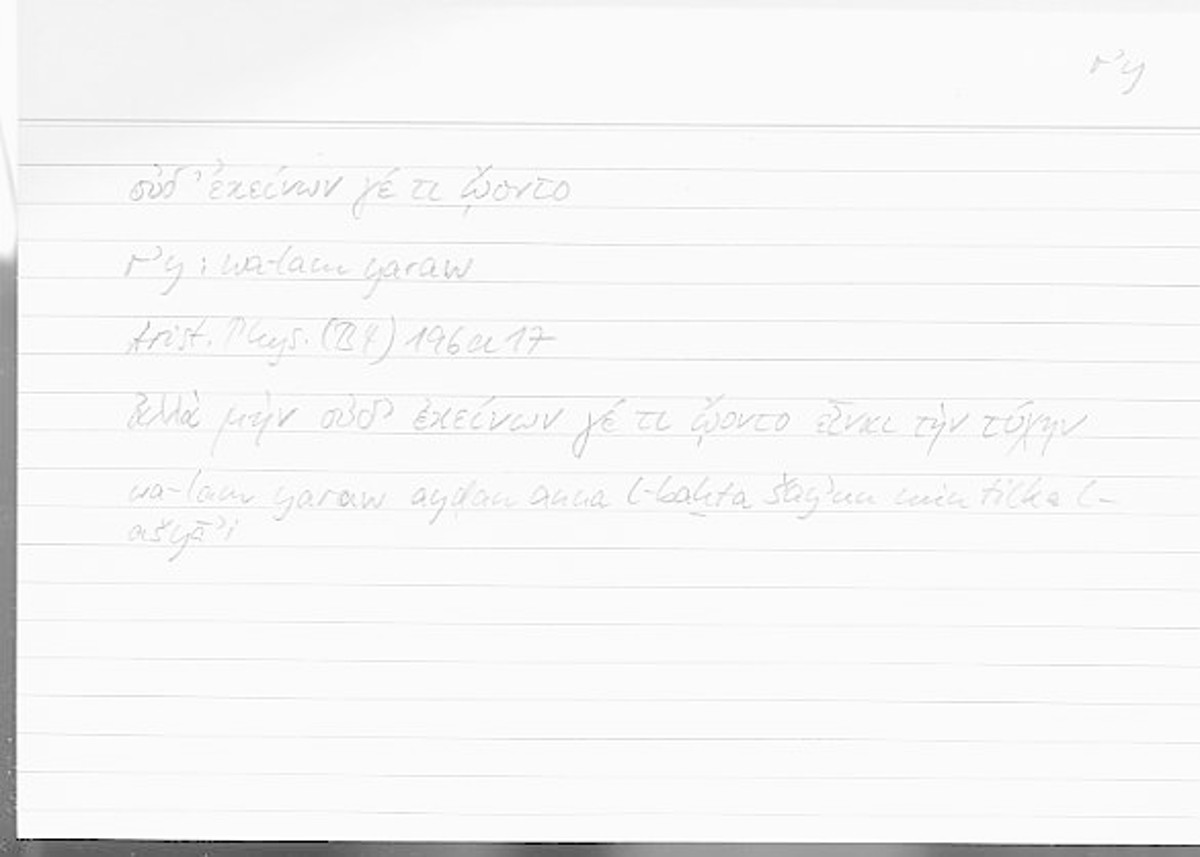 rʾy
οὐδ' ἐκείνων γέ τι ᾤοντο
rʾy : wa-lam yaraw
Arist. Phys. (B4) 196a17
ἀλλὰ μὴν οὐδ' ἐκείνων γέ τι ᾤοντο εἶναι τὴν τύχην
wa-lam yaraw ayḍan anna l-baḫta šayʾun min tilka l-
ašyāʾi